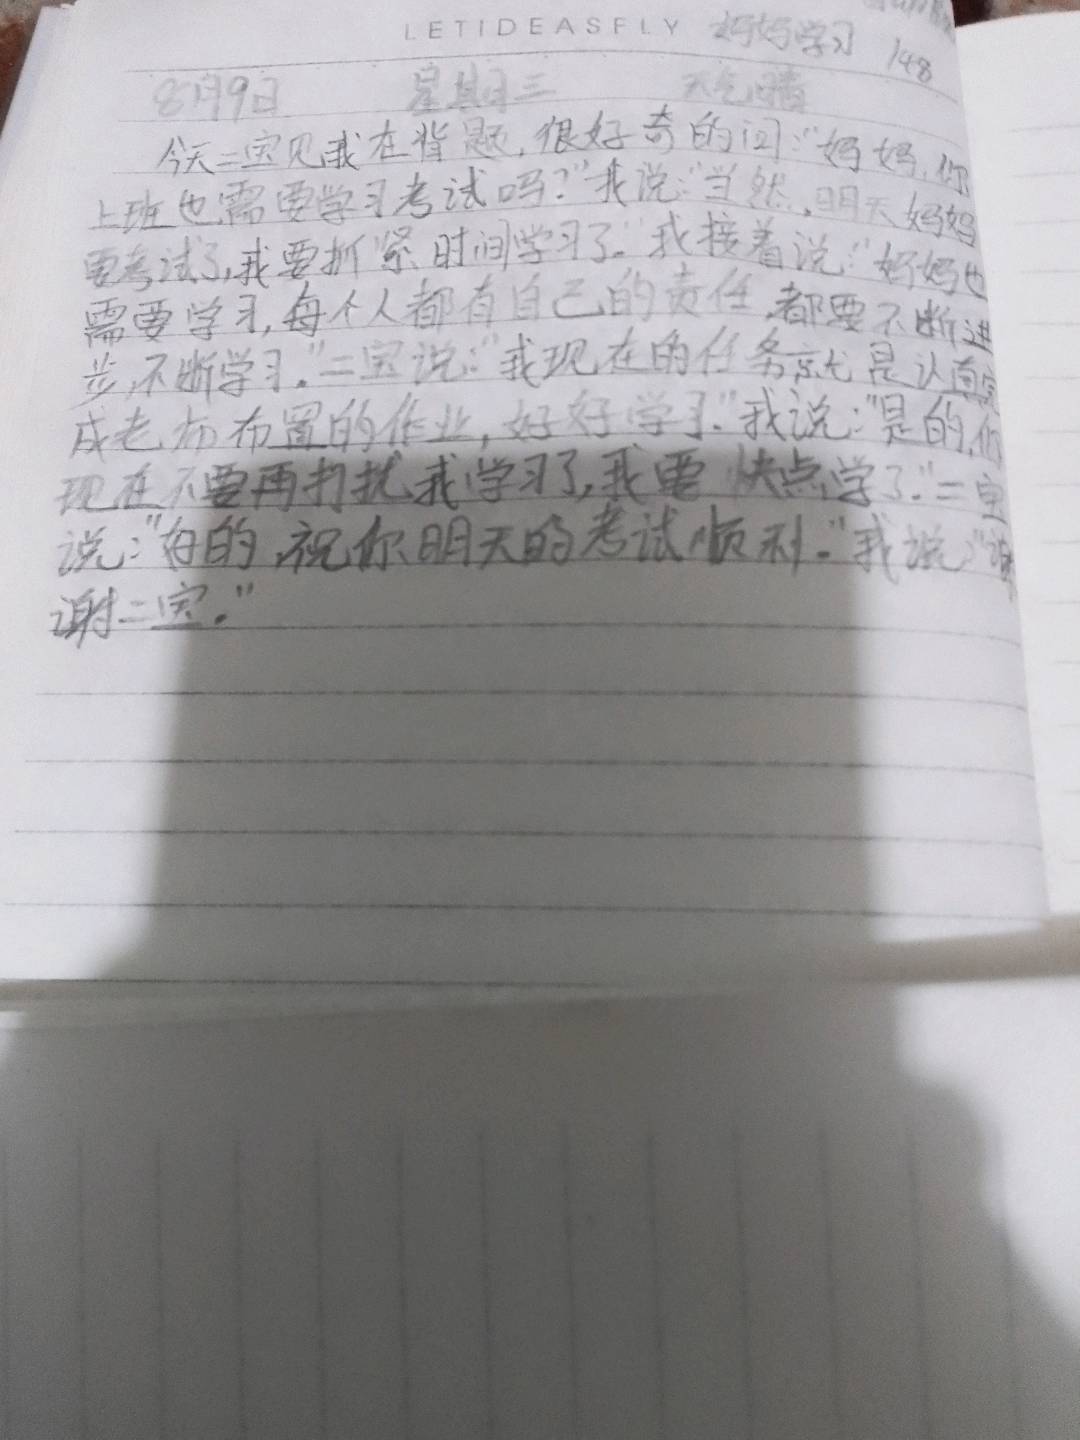 LETIDEASFLY 妈妈学习 148
8月9日 星期三 天气晴
今天二宝见我在背题,很好奇的问:"妈妈,你
上班也需要学习考试吗?"我说:"当然,明天妈妈
要考试了,我要抓紧时间学习了."我接着说:"妈妈也
需要学习,每个人都有自己的责任,都要不断进
步,不断学习."二宝说:"我现在的任务就是认真完
成老师布置的作业,好好学习."我说:"是的,你
现在不要再打扰我学习了,我要快点学了."二宝
说:"好的,祝你明天的考试顺利."我说"谢
谢二宝."